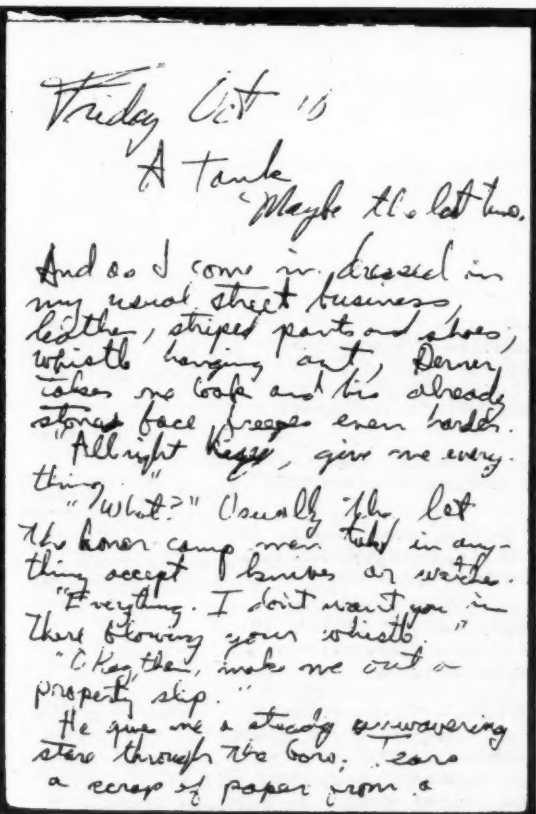 Friday Oct 10
A Tank
"Maybe the last two.
And as I come in, dressed in
my usual street business,
leather, striped pants and shoes,
whistle hanging out, Derner,
takes one look and his already
stoned face freezes even harder.
"Allright Kesey, give me every-
thing."
"What?" Usually they let
the honor camp men take in any-
thing accept knives or watches.
"Everything. I don't want you in
there blowing your whistle."
"OKay, then, make me out a
property slip."
He give me a steady unwavering
stare through the bars. Tears
a scrap of paper from a